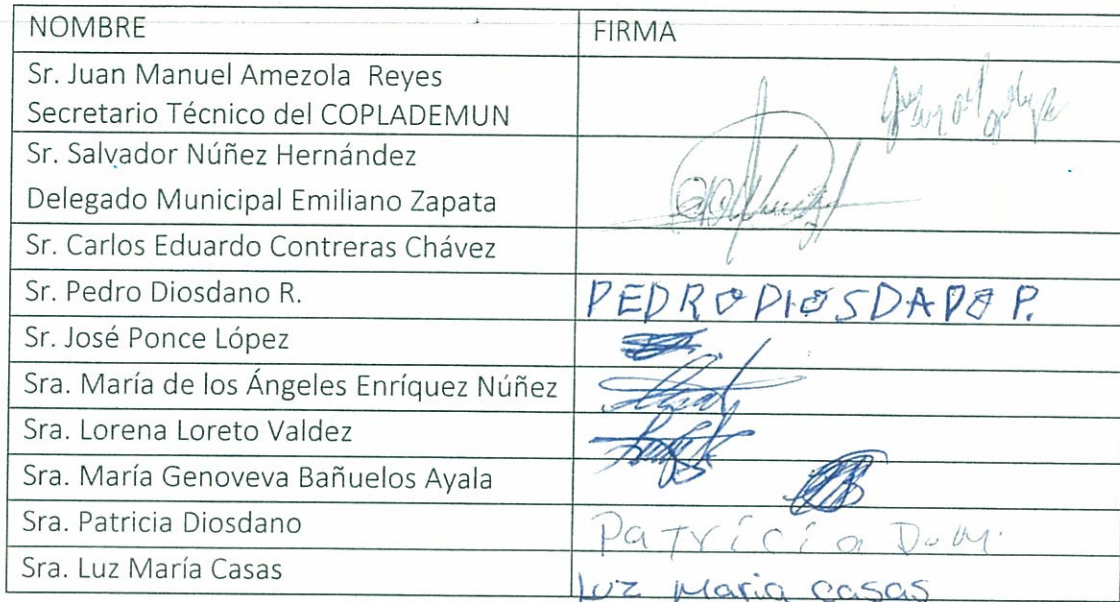 NOMBRE FIRMA
Sr. Juan Manuel Amezola Reyes
Secretario Técnico del COPLADEMUN
Sr. Salvador Núñez Hernández
Delegado Municipal Emiliano Zapata
Sr. Carlos Eduardo Contreras Chávez
Sr. Pedro Diosdano R. PEDRO DIOSDADO P.
Sr. José Ponce López
Sra. María de los Ángeles Enríquez Núñez
Sra. Lorena Loreto Valdez
Sra. María Genoveva Bañuelos Ayala
Sra. Patricia Diosdano Patricia D. M.
Sra. Luz María Casas Luz Maria casas